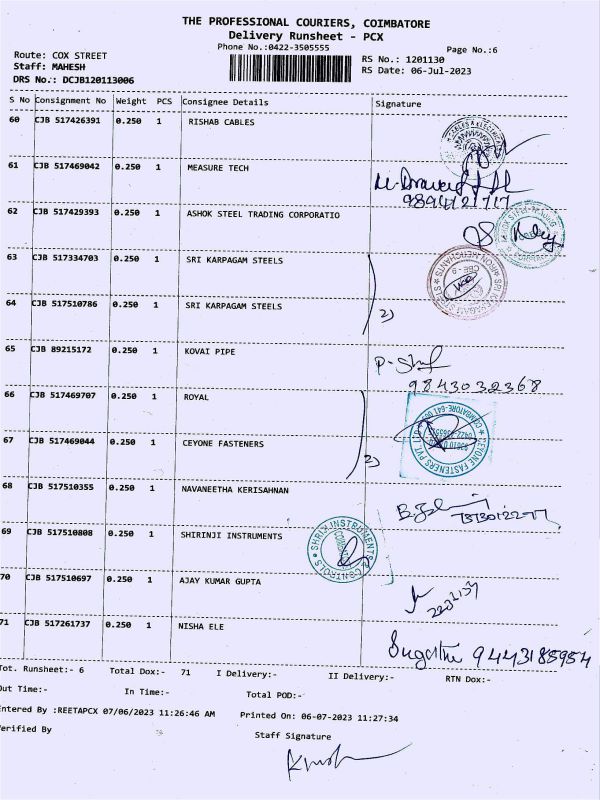 THE PROFESSIONAL COURIERS, COIMBATORE
Delivery Runsheet - PCX
Phone No.:0422-3505555
Page No.:6
Route: COX STREET
RS No.: 1201130
Staff: MAHESH
RS Date: 06-Jul-2023
DRS No.: DCJB120113006
S No Consignment No Weight PCS Consignee Details Signature
60 CJB 517426391 0.250 1 RISHAB CABLES
61 CJB 517469042 0.250 1 MEASURE TECH
9894121717
62 CJB 517429393 0.250 1 ASHOK STEEL TRADING CORPORATIO
63 CJB 517334703 0.250 1 SRI KARPAGAM STEELS
64 CJB 517510786 0.250 1 SRI KARPAGAM STEELS
2)
65 CJB 89215172 0.250 1 KOVAI PIPE
9843032368
66 CJB 517469707 0.250 1 ROYAL
67 CJB 517469044 0.250 1 CEYONE FASTENERS
2)
CEYONE FASTENERS PVT
68 CJB 517510355 0.250 1 NAVANEETHA KERISAHNAN
69 CJB 517510808 0.250 1 SHIRINJI INSTRUMENTS
70 CJB 517510697 0.250 1 AJAY KUMAR GUPTA
71 CJB 517261737 0.250 1 NISHA ELE
9443185954
Tot. Runsheet:- 6 Total Dox:- 71 I Delivery:- II Delivery:- RTN Dox:-
Out Time:- In Time:- Total POD:-
Entered By :REETAPCX 07/06/2023 11:26:46 AM Printed On: 06-07-2023 11:27:34
Verified By
Staff Signature